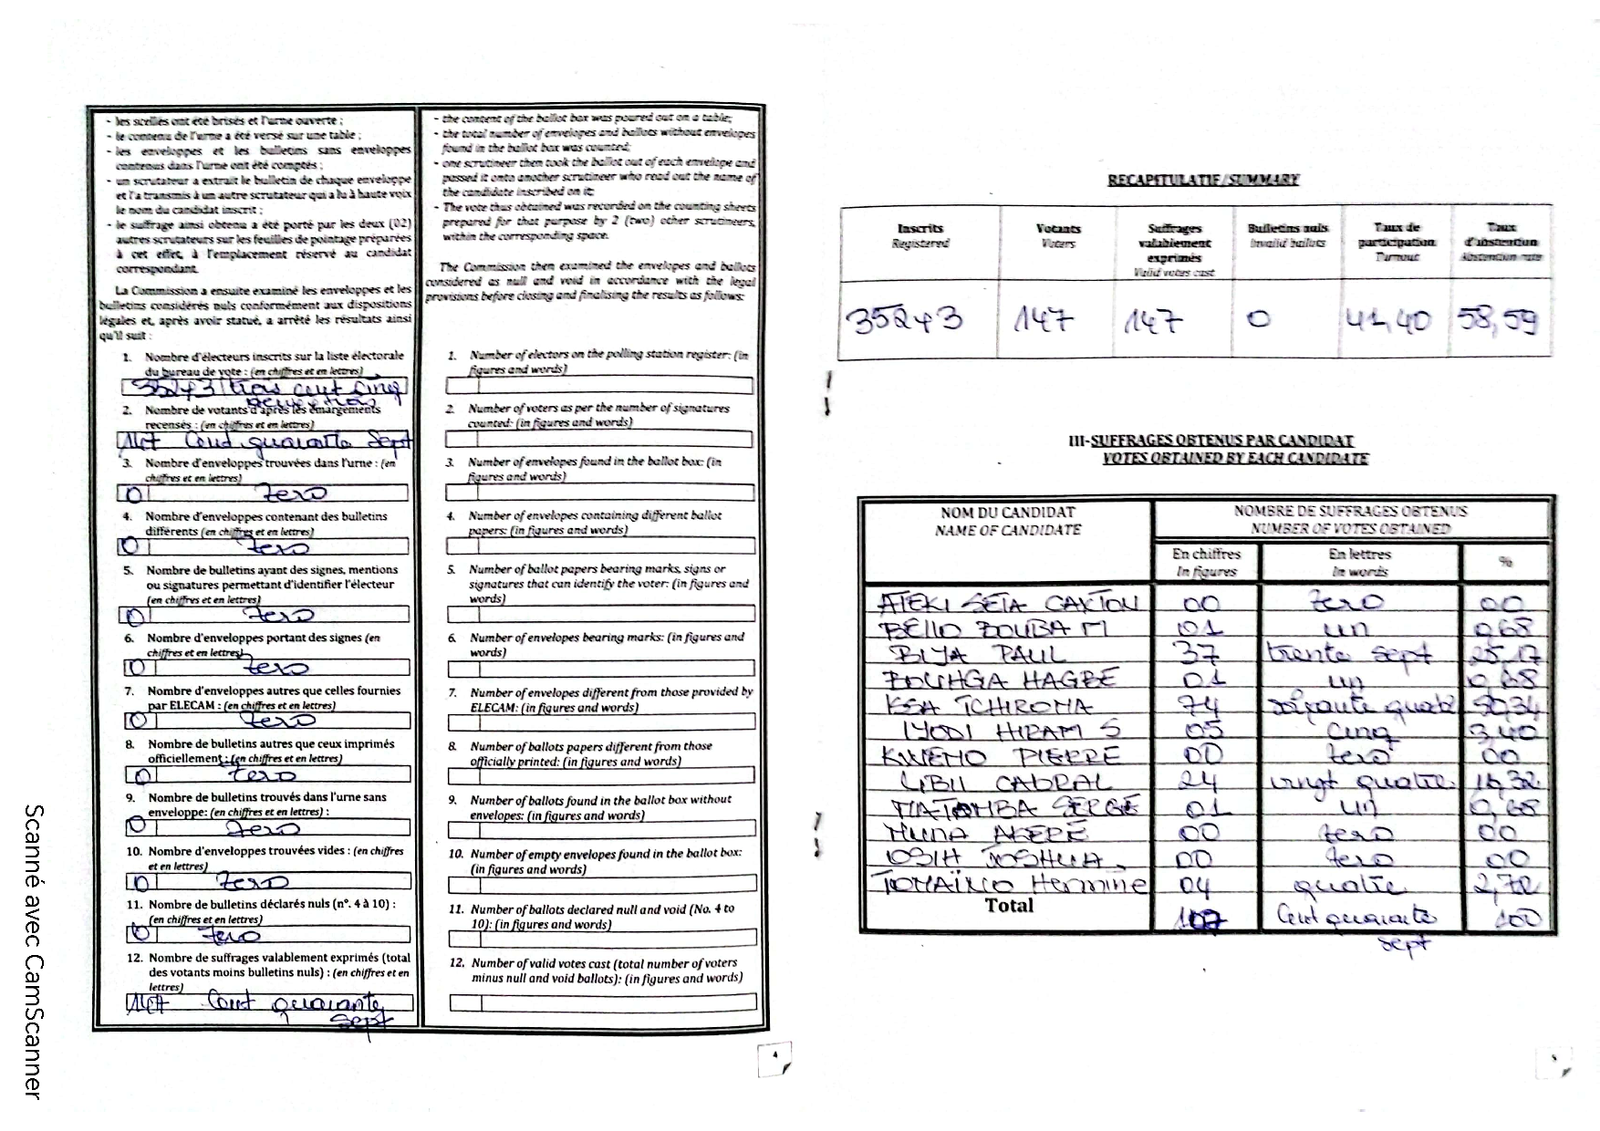 - les scellés ont été brisés et l'urne ouverte ;
- le contenu de l'urne a été versé sur une table ;
- les enveloppes et les bulletins sans enveloppes
contenus dans l'urne ont été comptés ;
- un scrutateur a extrait le bulletin de chaque enveloppe
et l'a transmis à un autre scrutateur qui a lu à haute voix
le nom du candidat inscrit ;
- le suffrage ainsi obtenu a été porté par les deux (02)
autres scrutateurs sur les feuilles de pointage préparées
à cet effet, à l'emplacement réservé au candidat
correspondant.
La Commission a ensuite examiné les enveloppes et les
bulletins considérés nuls conformément aux dispositions
légales et, après avoir statué, a arrêté les résultats ainsi
qu'il suit :
1. Nombre d'électeurs inscrits sur la liste électorale
du bureau de vote : (en chiffres et en lettres)
trois cent cinq
2. Nombre de votants d'après les émargements
recensés : (en chiffres et en lettres)
147 Cent quarante sept
3. Nombre d'enveloppes trouvées dans l'urne : (en
chiffres et en lettres)
0 zero
4. Nombre d'enveloppes contenant des bulletins
différents (en chiffres et en lettres)
0 zero
5. Nombre de bulletins ayant des signes, mentions
ou signatures permettant d'identifier l'électeur
(en chiffres et en lettres)
0 zero
6. Nombre d'enveloppes portant des signes (en
chiffres et en lettres)
0 zero
7. Nombre d'enveloppes autres que celles fournies
par ELECAM : (en chiffres et en lettres)
0 zero
8. Nombre de bulletins autres que ceux imprimés
officiellement : (en chiffres et en lettres)
0 zero
9. Nombre de bulletins trouvés dans l'urne sans
enveloppe: (en chiffres et en lettres) :
0 zero
10. Nombre d'enveloppes trouvées vides : (en chiffres
et en lettres)
0 zero
11. Nombre de bulletins déclarés nuls (n°. 4 à 10) :
(en chiffres et en lettres)
0 zero
12. Nombre de suffrages valablement exprimés (total
des votants moins bulletins nuls) : (en chiffres et en
lettres)
147 Cent quarante
sept
- the content of the ballot box was poured out on a table;
- the total number of envelopes and ballots without envelopes
found in the ballot box was counted;
- one scrutineer then took the ballot out of each envelope and
passed it onto another scrutineer who read out the name of
the candidate inscribed on it;
- The vote thus obtained was recorded on the counting sheets
prepared for that purpose by 2 (two) other scrutineers,
within the corresponding space.
The Commission then examined the envelopes and ballots
considered as null and void in accordance with the legal
provisions before closing and finalising the results as follows:
1. Number of electors on the polling station register: (in
figures and words)
2. Number of voters as per the number of signatures
counted: (in figures and words)
3. Number of envelopes found in the ballot box: (in
figures and words)
4. Number of envelopes containing different ballot
papers: (in figures and words)
5. Number of ballot papers bearing marks, signs or
signatures that can identify the voter: (in figures and
words)
6. Number of envelopes bearing marks: (in figures and
words)
7. Number of envelopes different from those provided by
ELECAM: (in figures and words)
8. Number of ballots papers different from those
officially printed: (in figures and words)
9. Number of ballots found in the ballot box without
envelopes: (in figures and words)
10. Number of empty envelopes found in the ballot box:
(in figures and words)
11. Number of ballots declared null and void (No. 4 to
10): (in figures and words)
12. Number of valid votes cast (total number of voters
minus null and void ballots): (in figures and words)
4
RECAPITULATIF/SUMMARY
Inscrits Registered
Votants Voters
Suffrages valablement exprimés Valid votes cast
Bulletins nuls Invalid ballots
Taux de participation Turnout
Taux d'abstention Abstention rate
147 147 0 41,40 58,59
III-SUFFRAGES OBTENUS PAR CANDIDAT
VOTES OBTAINED BY EACH CANDIDATE
NOM DU CANDIDAT NOMBRE DE SUFFRAGES OBTENUS
NAME OF CANDIDATE NUMBER OF VOTES OBTAINED
En chiffres En lettres %
In figures In words
ATEKI SETA CAXTON 00 zero 00
BELLO BOUBA M 01 un 0,68
BIYA PAUL 37 trente sept 25,17
BOUHGA HAGBE 01 un 0,68
ISSA TCHIROMA 74 soixante quatorze 50,34
IYODI HIRAM S 05 cinq 3,40
KWEMO PIERRE 00 zero 00
LIBII CABRAL 24 vingt quatre 16,32
MATOMBA SERGE 01 un 0,68
MUNA AKERE 00 zero 00
OSIH JOSHUA. 00 zero 00
TOMAÏNO Hermine 04 quatre 2,72
Total 147 Cent quarante 100
sept
Scanné avec CamScanner